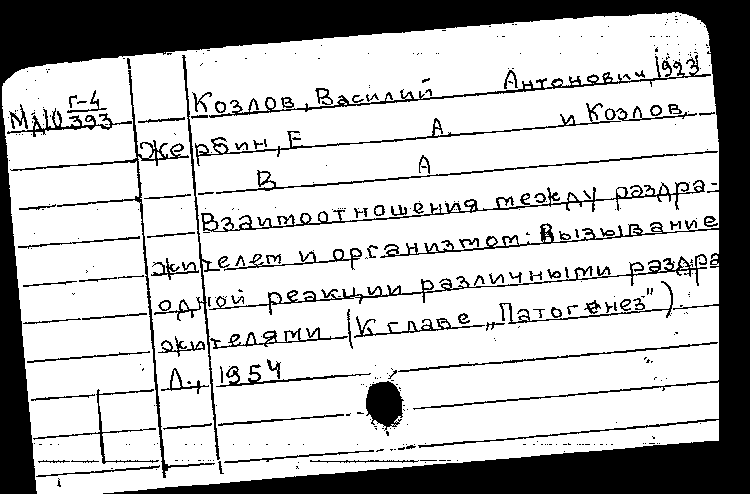 Козлов, Василий Антонович, 1923
Г-4
МД10 393
Жербин, Е А. и Козлов,
В А
Взаимоотношения между раздра-
жителем и организмом: Вызывание
одной реакции различными раздра
жителями (К главе „Патогенез").
Л., 1954